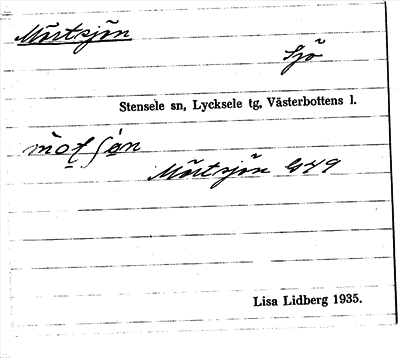 Mörtsjön
Sjö
Stensele sn, Lycksele tg, Västerbottens l.
Mörtsjön
Lisa Lidberg 1935.